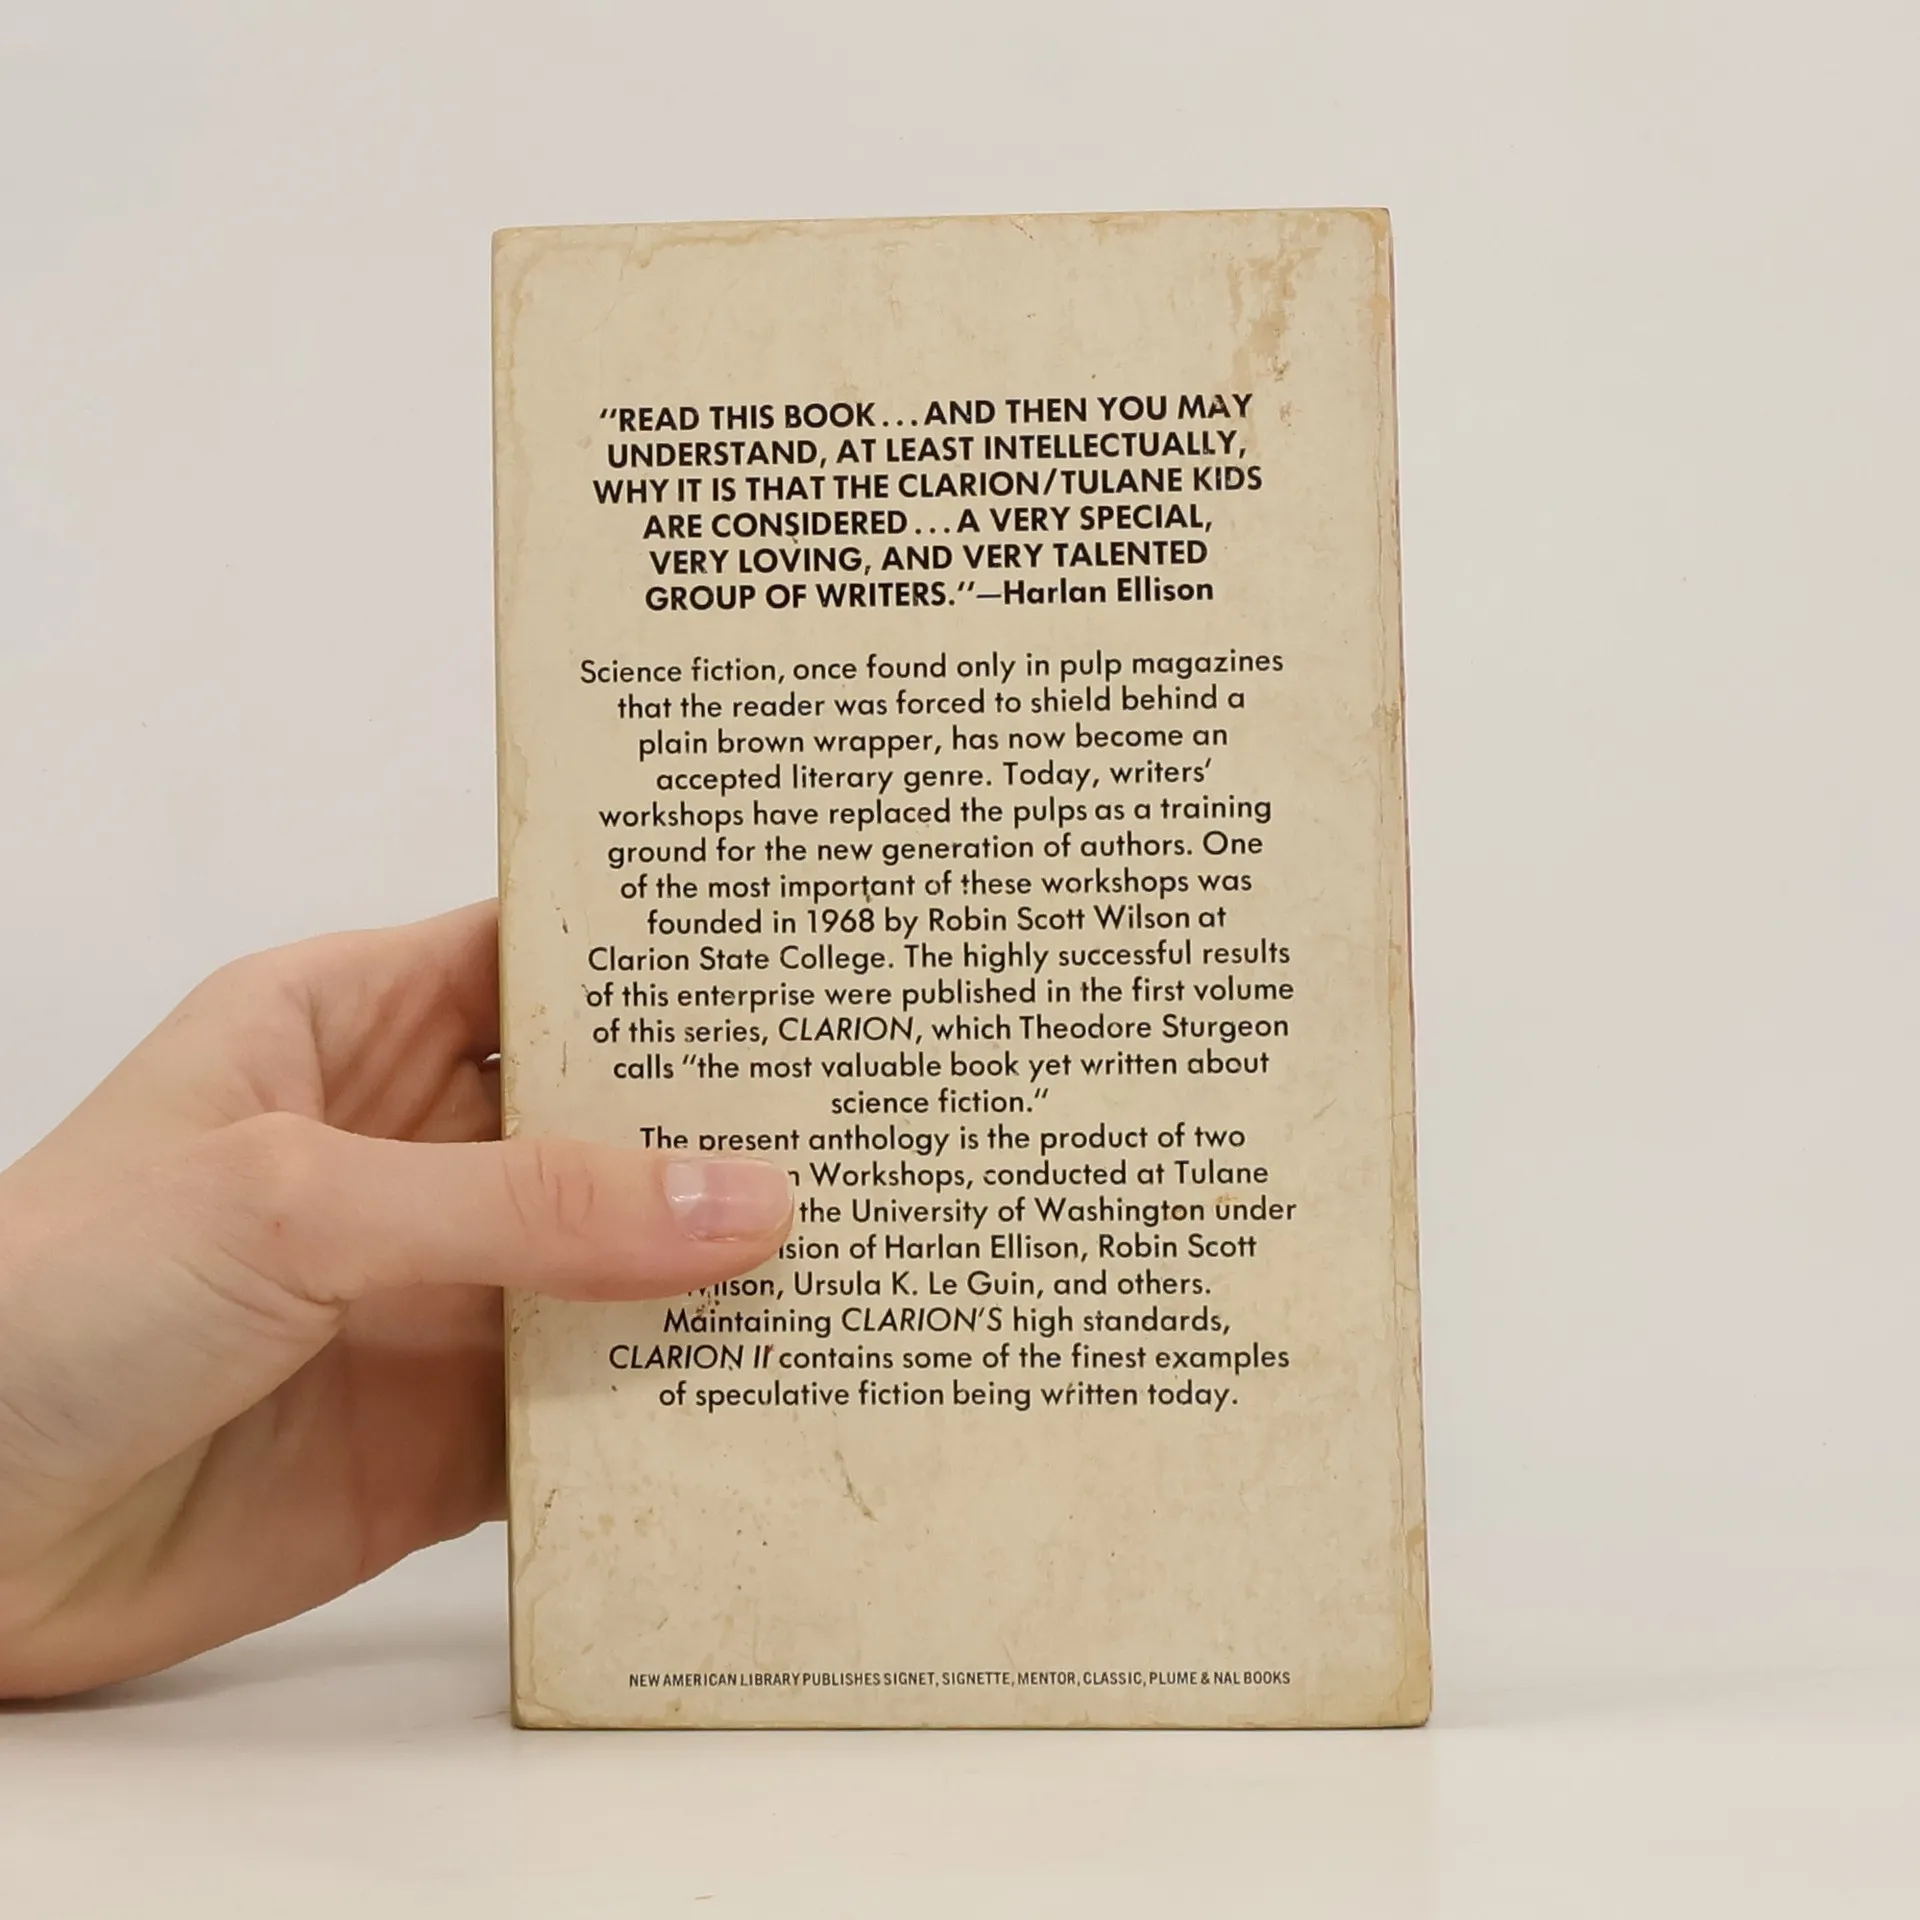 "READ THIS BOOK...AND THEN YOU MAY
UNDERSTAND, AT LEAST INTELLECTUALLY,
WHY IT IS THAT THE CLARION/TULANE KIDS
ARE CONSIDERED...A VERY SPECIAL,
VERY LOVING, AND VERY TALENTED
GROUP OF WRITERS."—Harlan Ellison
Science fiction, once found only in pulp magazines
that the reader was forced to shield behind a
plain brown wrapper, has now become an
accepted literary genre. Today, writers'
workshops have replaced the pulps as a training
ground for the new generation of authors. One
of the most important of these workshops was
founded in 1968 by Robin Scott Wilson at
Clarion State College. The highly successful results
of this enterprise were published in the first volume
of this series, CLARION, which Theodore Sturgeon
calls "the most valuable book yet written about
science fiction."
The present anthology is the product of two
Workshops, conducted at Tulane
the University of Washington under
of Harlan Ellison, Robin Scott
Wilson, Ursula K. Le Guin, and others.
Maintaining CLARION'S high standards,
CLARION II contains some of the finest examples
of speculative fiction being written today.
NEW AMERICAN LIBRARY PUBLISHES SIGNET, SIGNETTE, MENTOR, CLASSIC, PLUME & NAL BOOKS